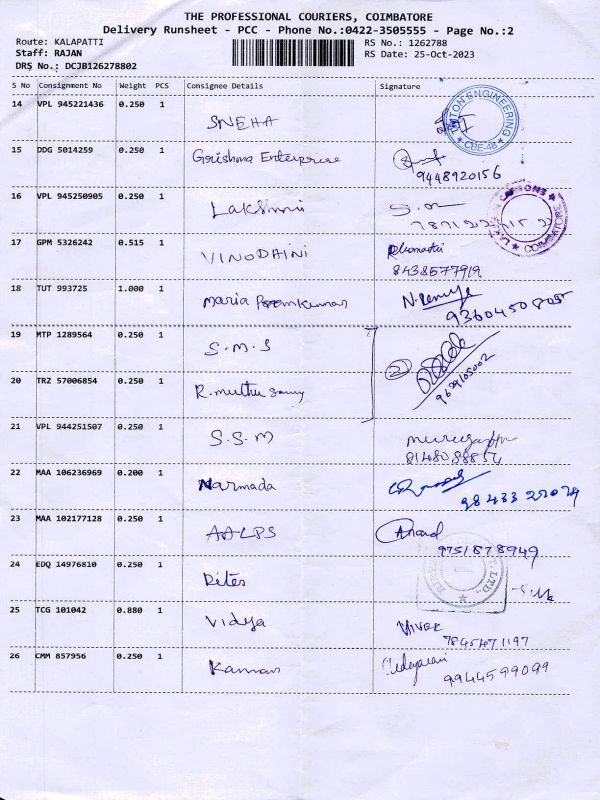 THE PROFESSIONAL COURIERS, COIMBATORE
Delivery Runsheet - PCC - Phone No.:0422-3505555 - Page No.:2
Route: KALAPATTI
RS No.: 1262788
Staff: RAJAN
RS Date: 25-Oct-2023
DRS No.: DCJB126278802
S No Consignment No Weight PCS Consignee Details Signature
14 VPL 945221436 0.250 1 SNEHA
ENGINEERING
CBE-48
15 DDG 5014259 0.250 1 Grishma Enterprise
9448920156
16 VPL 945250905 0.250 1 Lakshmi
COIMBATORE
17 GPM 5326242 0.515 1 VINODHINI
8438577919
18 TUT 993725 1.000 1 Maria Premkumar
9360450805
19 MTP 1289564 0.250 1 S.M.S
2
20 TRZ 57006854 0.250 1 R. muthu samy
9629105002
21 VPL 944251507 0.250 1 S.S.M
22 MAA 106236969 0.200 1 Narmada
23 MAA 102177128 0.250 1 AALPS Anand
9751878949
24 EDQ 14976810 0.250 1 Rites
LTD.
25 TCG 101042 0.880 1 Vidya VIVEK
26 CMM 857956 0.250 1 Kannan
9944599099